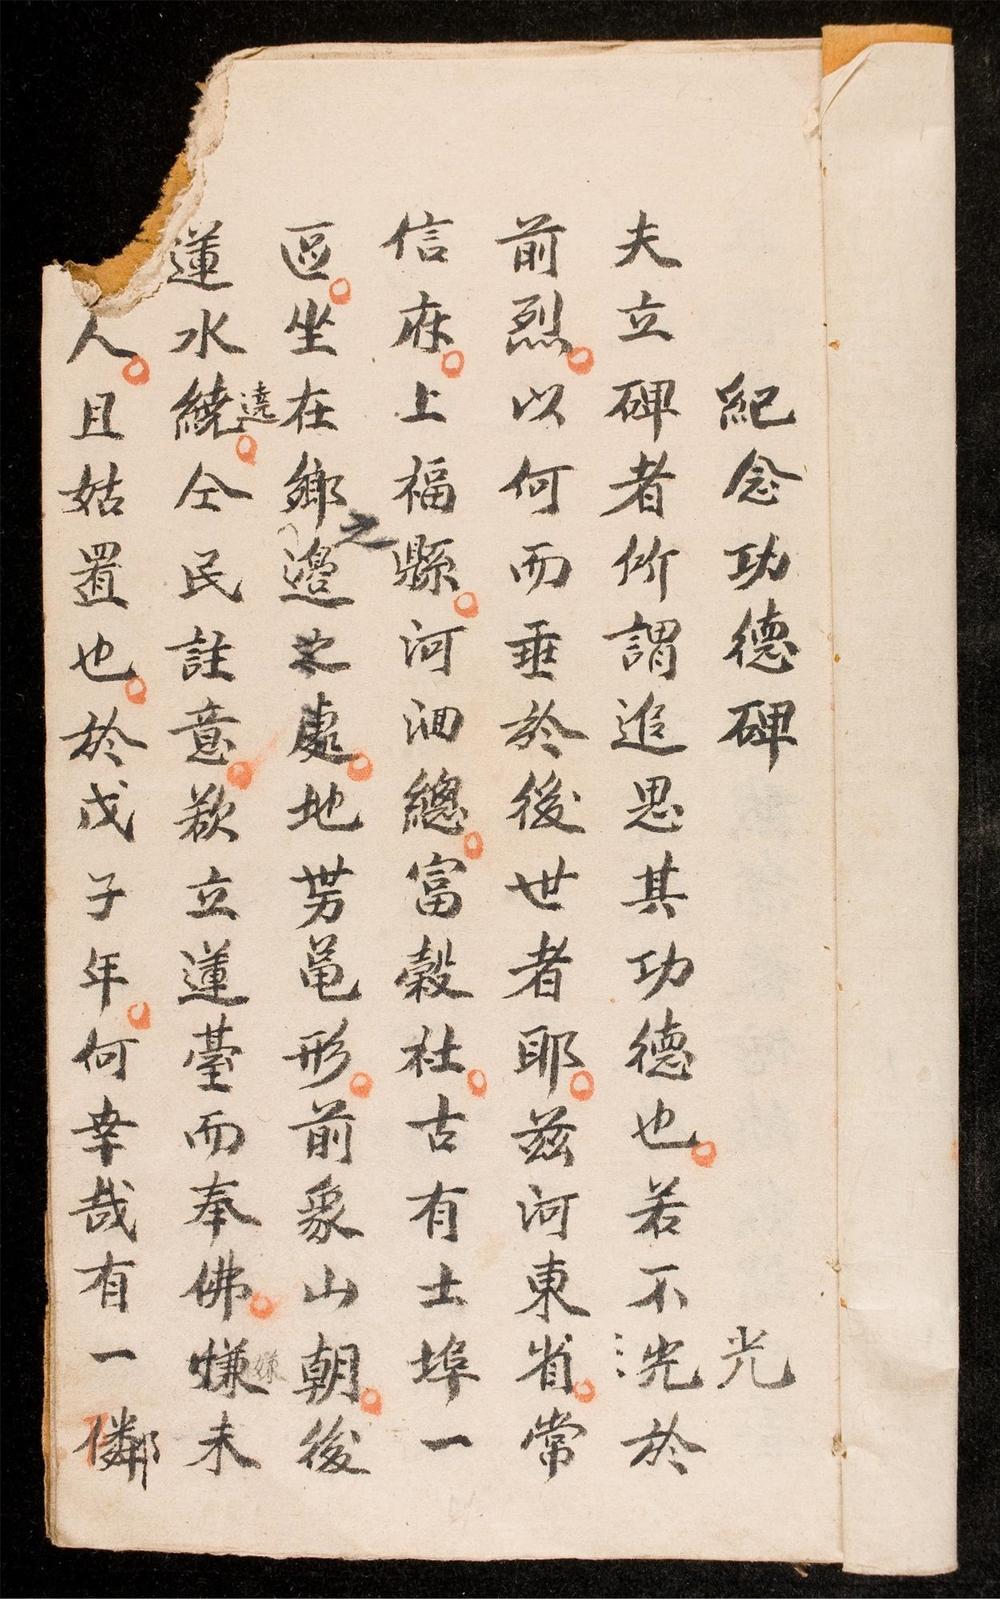 紀念功德碑 光
夫立碑者所謂追思其功德也若不光於
前烈以何而垂於後世者耶茲河東省常
信府上福縣河洄總富穀社古有土埠一
區坐在鄉邊之處地勞黽形前象山朝後
蓮水繞遶仝民註意欲立蓮臺而奉佛嫌嫌未
人且姑置也於戊子年何幸哉有一鄰